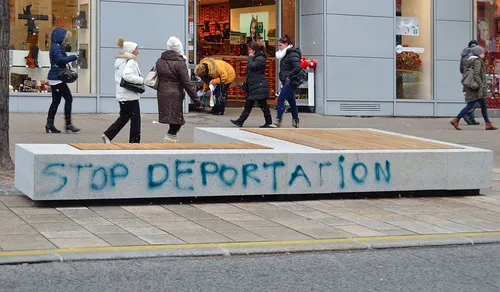 STOP DEPORTATION